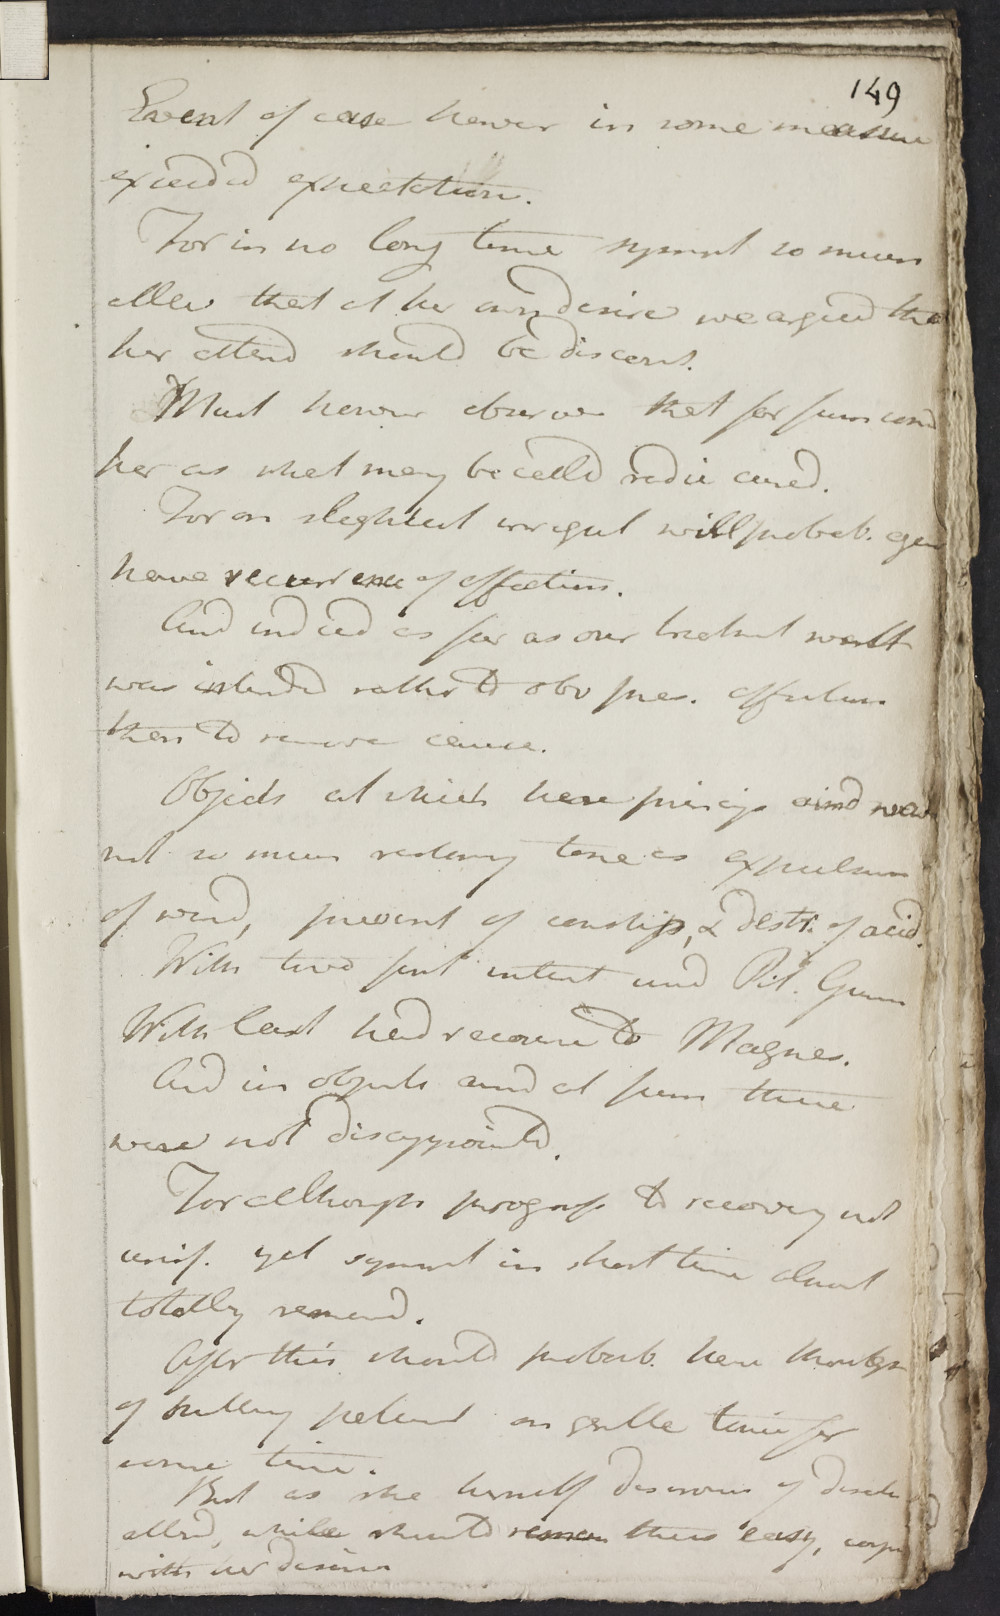 149
Event of case howev in some measure
exceeded expectation.
For in no long time sympt so much
allev that at her own desire we agreed tha
her attend should be discont.
Must howev observe that far from cons
her as what may be calld radic cured.
For on slightest irregul will probab. again
have recurrence of affection.
And indeed as far as our treatmt went
was intended rather to obv pres. affection
than to remove cause.
Objects at which here princip aimd were
not so much restoring tone as expulsion
of wind, prevent of constip, & destr. of acid.
With two first intent used Pil. Gum
With last had recourse to Magnes.
And in objects aimd at from these
were not disappointed.
For although progress to recovery not
unif. yet sympt in short time almost
totally removd.
After this should probab. have thought
of putting patient on gentle tonic for
some time.
But as she herself desirous of
allowd, while should remain thus easy,
with her desire